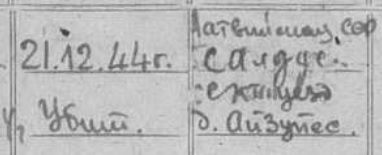 21.12.44г.
Убит.
Латвийская ССР
Салдус
уезд
д. Айзупес.